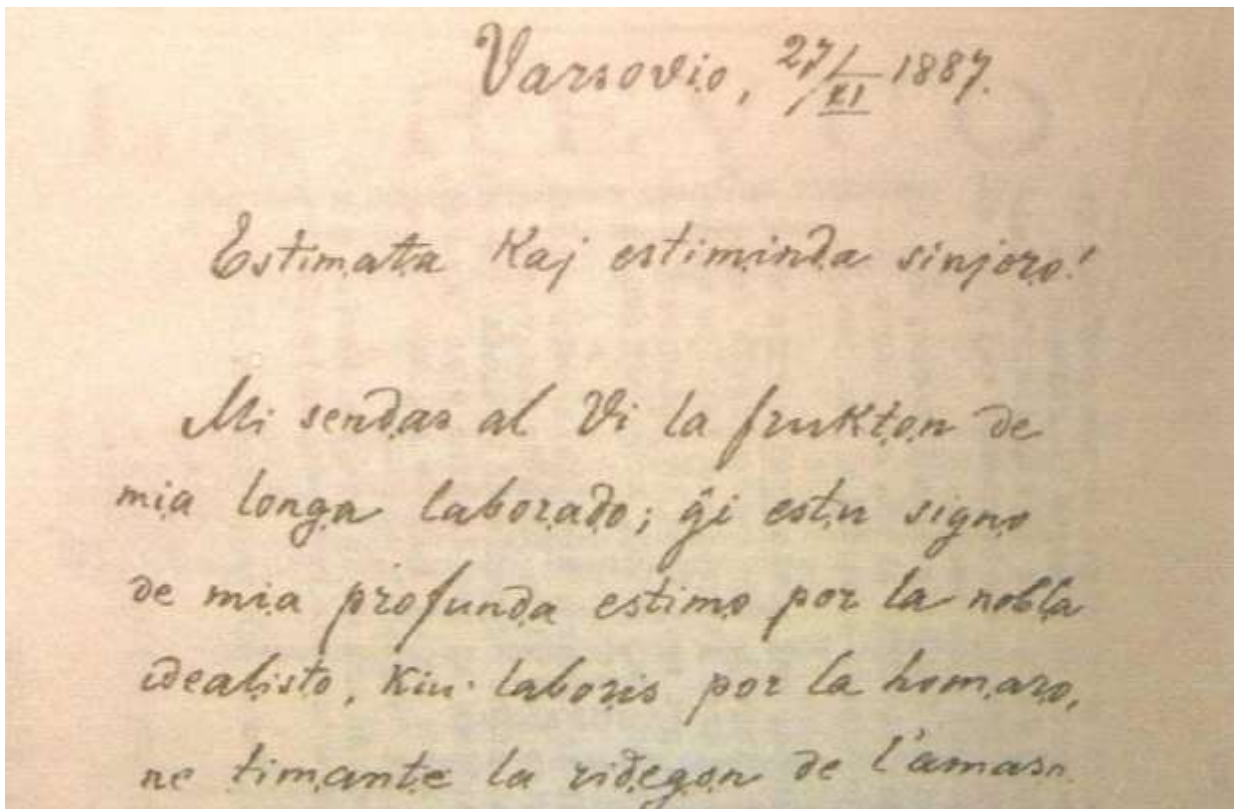 Varsovio, 27/XI 1887.
Estim,at,a kaj estim,ind,a sinjor,o!
Mi send,as al Vi la frukt,o,n de
mi,a long,a labor,ad,o; ĝi est,u sign,o
de mi,a profund,a estim,o por la nobl,a
ideal,ist,o, kiu labor,is por la hom,ar,o,
ne tim,ant,e la rid,eg,o,n de l'amas,o